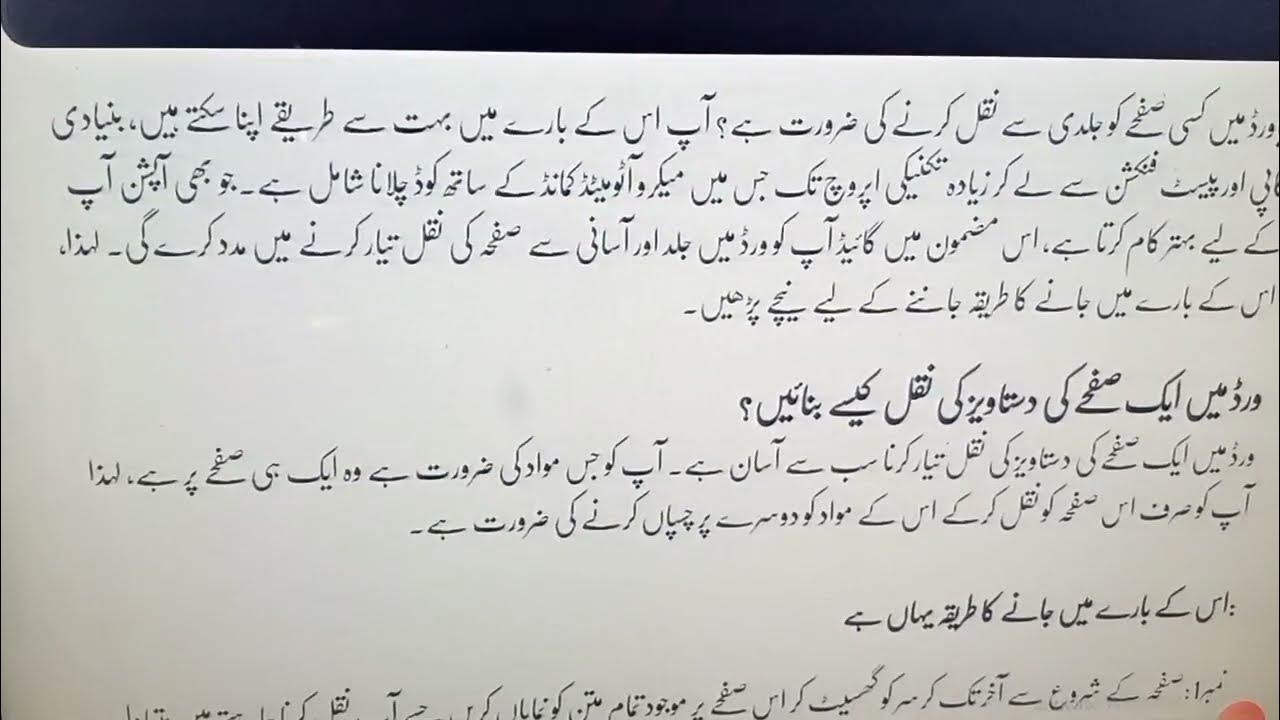 ورڈ میں کسی صفحے کو جلدی سے نقل کرنے کی ضرورت ہے؟ آپ اس کے بارے میں بہت سے طریقے اپنا سکتے ہیں، بنیادی
کاپی اور پیسٹ فنکشن سے لے کر زیادہ تکنیکی اپروچ تک جس میں میکرو آٹومیٹڈ کمانڈ کے ساتھ کوڈ چلانا شامل ہے۔ جو بھی آپشن آپ
کے لیے بہتر کام کرتا ہے، اس مضمون میں گائیڈ آپ کو ورڈ میں جلد اور آسانی سے صفحہ کی نقل تیار کرنے میں مدد کرے گی۔ لہذا،
اس کے بارے میں جانے کا طریقہ جاننے کے لیے نیچے پڑھیں۔
ورڈ میں ایک صفحے کی دستاویز کی نقل کیسے بنائیں؟
ورڈ میں ایک صفحے کی دستاویز کی نقل تیار کرنا سب سے آسان ہے۔ آپ کو جس مواد کی ضرورت ہے وہ ایک ہی صفحے پر ہے، لہذا
آپ کو صرف اس صفحہ کو نقل کرکے اس کے مواد کو دوسرے پر چسپاں کرنے کی ضرورت ہے۔
:اس کے بارے میں جانے کا طریقہ یہاں ہے
نمبر1: صفحہ کے شروع سے آخر تک کرسر کو گھسیٹ کر اس صفحے پر موجود تمام متن کو نمایاں کریں۔ جسے آپ نقل کرنا